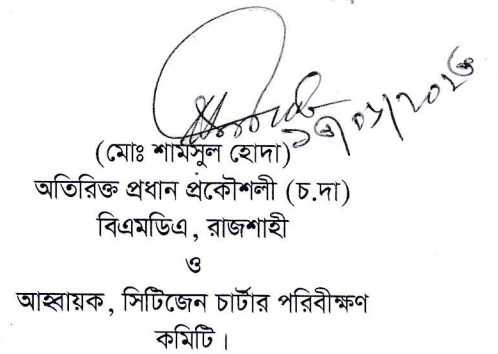 (মোঃ শামসুল হোদা)
অতিরিক্ত প্রধান প্রকৌশলী (চ.দা)
বিএমডিএ, রাজশাহী
ও
আহ্বায়ক, সিটিজেন চার্টার পরিবীক্ষণ
কমিটি।